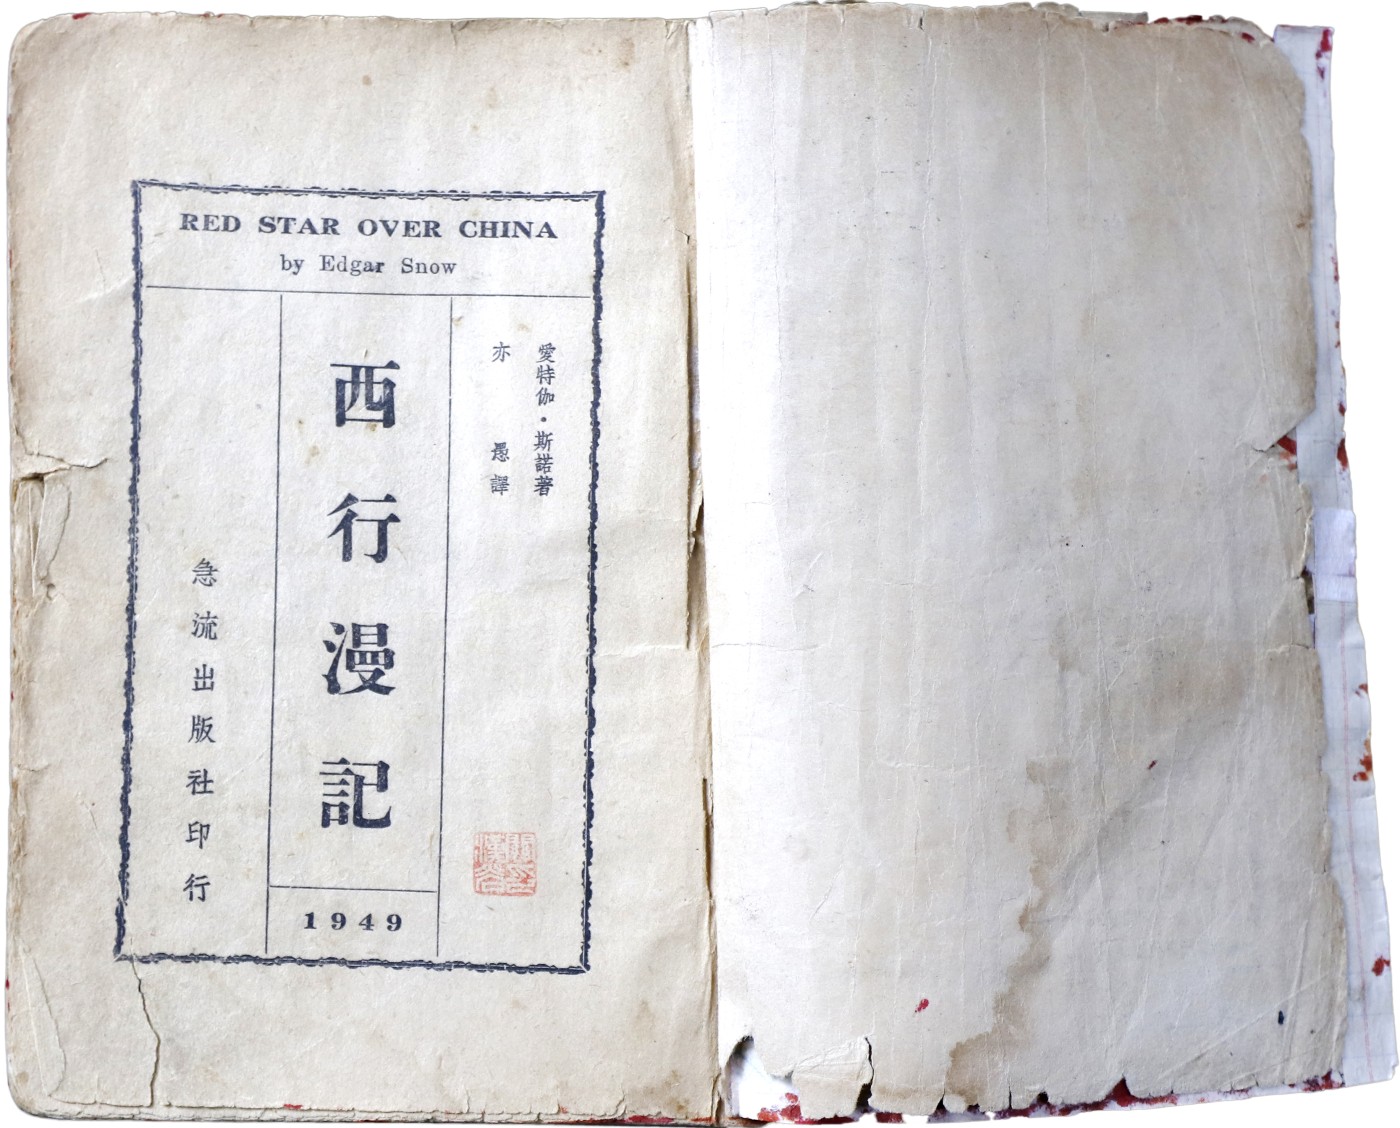 RED STAR OVER CHINA
by Edgar Snow
愛特伽·斯諾著
亦愚譯
西行漫記
1949
急流出版社印行